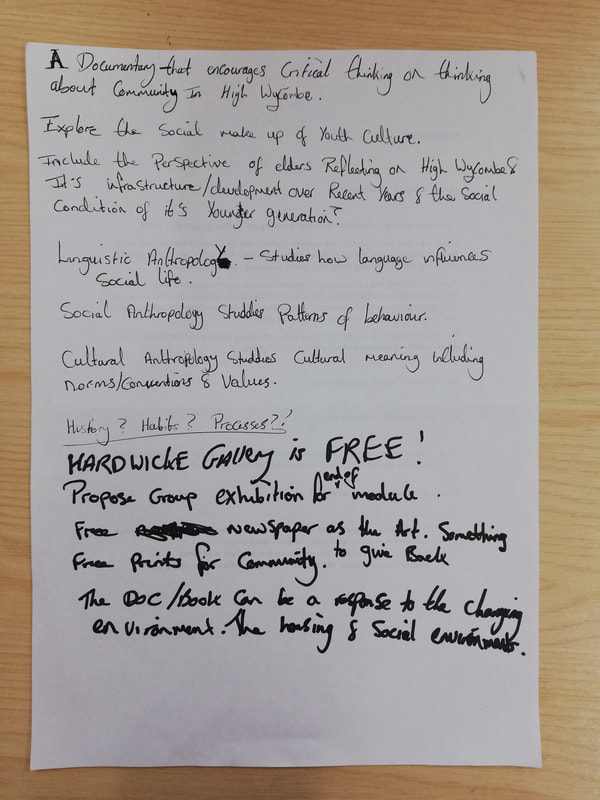 A Documentary that encourages Critical thinking or thinking
about Community In High Wycombe.
Explore the Social make up of Youth Culture.
Include the Perspective of elders Reflecting on High Wycombe &
It's infrastructure/development over Recent Years & the Social
Condition of it's Younger generation?
Linguistic Anthropology. – Studies how language influences
Social life.
Social Anthropology Studdies Patterns of behaviour.
Cultural Anthropology Studdies Cultural meaning including
norms/Conventions & Values.
History? Habits? Processes?!
HARDWICKE Gallery is FREE!
Propose Group exhibition for end of module.
Free Newspaper as the Art. Something
Free Prints for Community. to give Back
The Doc/Book Can be a response to the changing
environment. The housing & Social environments.